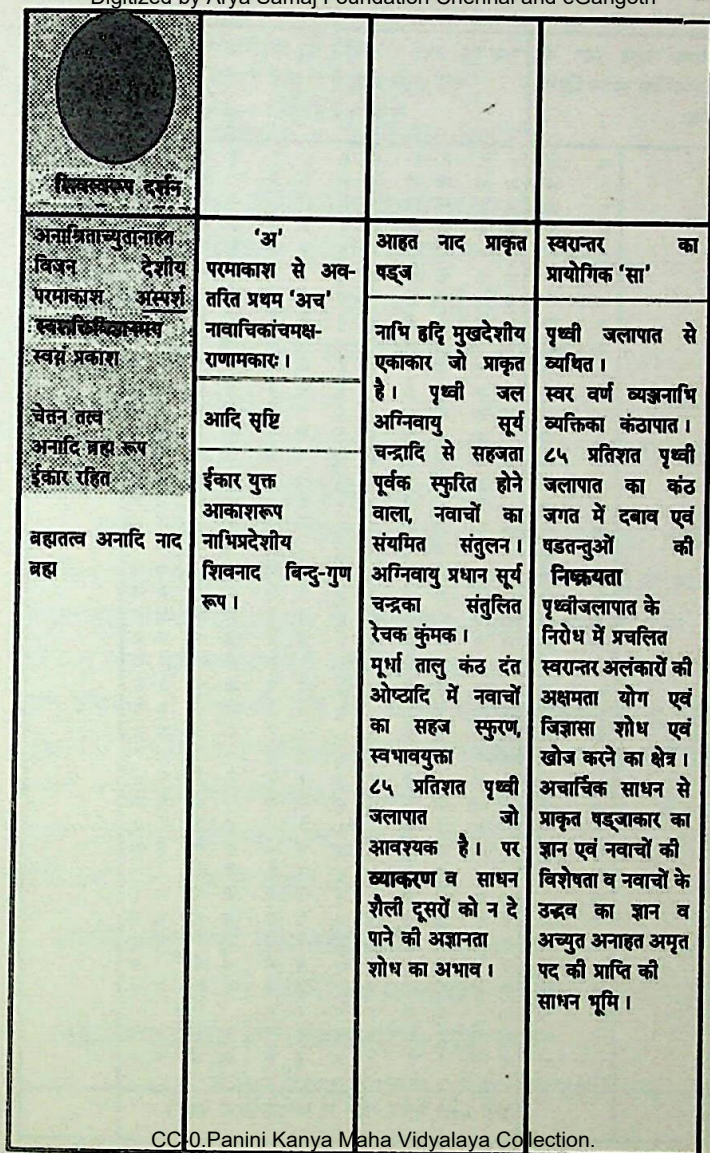 Digitized by Arya Samaj Foundation Chennai and eGangotri
शिवस्वरूप दर्शन
अनाश्रिताच्युतानाहत
विजन देशीय
परमाकाश अस्पर्श
स्वयं प्रकाश
चेतन तत्व
अनादि ब्रह्म रूप
ईकार रहित
ब्रह्मतत्व अनादि नाद
ब्रह्म
‘अ’
परमाकाश से अव-
तरित प्रथम ‘अच’
नावाचिकांचमक्ष-
राणामकारः ।
आदि सृष्टि
ईकार युक्त
आकाशरूप
नाभिप्रदेशीय
शिवनाद बिन्दु-गुण
रूप ।
आहत नाद प्राकृत
षड्ज
नाभि हृदि मुखदेशीय
एकाकार जो प्राकृत
है। पृथ्वी जल
अग्निवायु सूर्य
चन्द्रादि से सहजता
पूर्वक स्फुरित होने
वाला, नवाचों का
संयमित संतुलन ।
अग्निवायु प्रधान सूर्य
चन्द्रका संतुलित
रेचक कुंमक ।
मूर्धा तालु कंठ दंत
ओष्ठादि में नवाचों
का सहज स्फुरण,
स्वभावयुक्ता
८५ प्रतिशत पृथ्वी
जलापात जो
आवश्यक है। पर
व्याकरण व साधन
शैली दूसरों को न दे
पाने की अज्ञानता
शोध का अभाव ।
स्वरान्तर का
प्रायोगिक ‘सा’
पृथ्वी जलापात से
व्यथित ।
स्वर वर्ण व्यञ्जनाभि
व्यक्तिका कंठापात ।
८५ प्रतिशत पृथ्वी
जलापात का कंठ
जगत में दबाव एवं
षडतन्तुओं की
निष्क्रयता
पृथ्वीजलापात के
निरोध में प्रचलित
स्वरान्तर अलंकारों की
अक्षमता योग एवं
जिज्ञासा शोध एवं
खोज करने का क्षेत्र ।
अचार्चिक साधन से
प्राकृत षड्जाकार का
ज्ञान एवं नवाचों की
विशेषता व नवाचों के
उद्भव का ज्ञान व
अच्युत अनाहत अमृत
पद की प्राप्ति की
साधन भूमि ।
CC-0.Panini Kanya Maha Vidyalaya Collection.